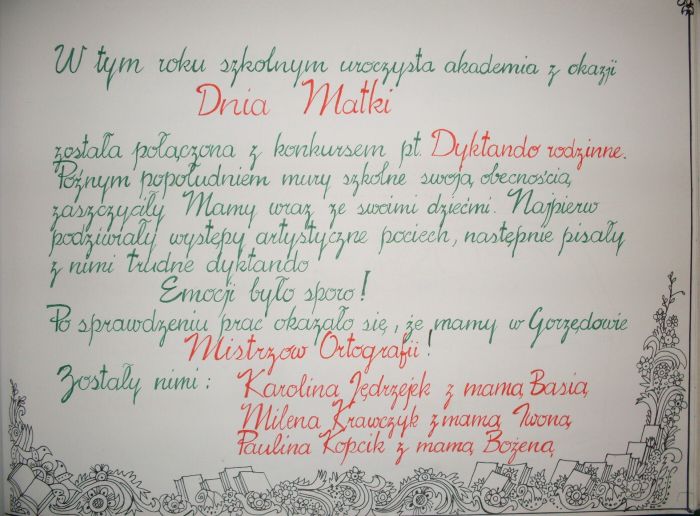 W tym roku szkolnym uroczysta akademia z okazji
Dnia Matki
została połączona z konkursem pt. Dyktando rodzinne.
Późnym popołudniem mury szkolne swoją obecnością
zaszczyciły Mamy wraz ze swoimi dziećmi. Najpierw
podziwiały występy artystyczne pociech, następnie pisały
z nimi trudne dyktando
Emocji było sporo!
Po sprawdzeniu prac okazało się, że mamy w Gorzędowie
Mistrzów Ortografii!
Zostały nimi: Karolina Jędrzejek z mamą Basią
Milena Krawczyk z mamą Iwoną
Paulina Kopcik z mamą Bożeną